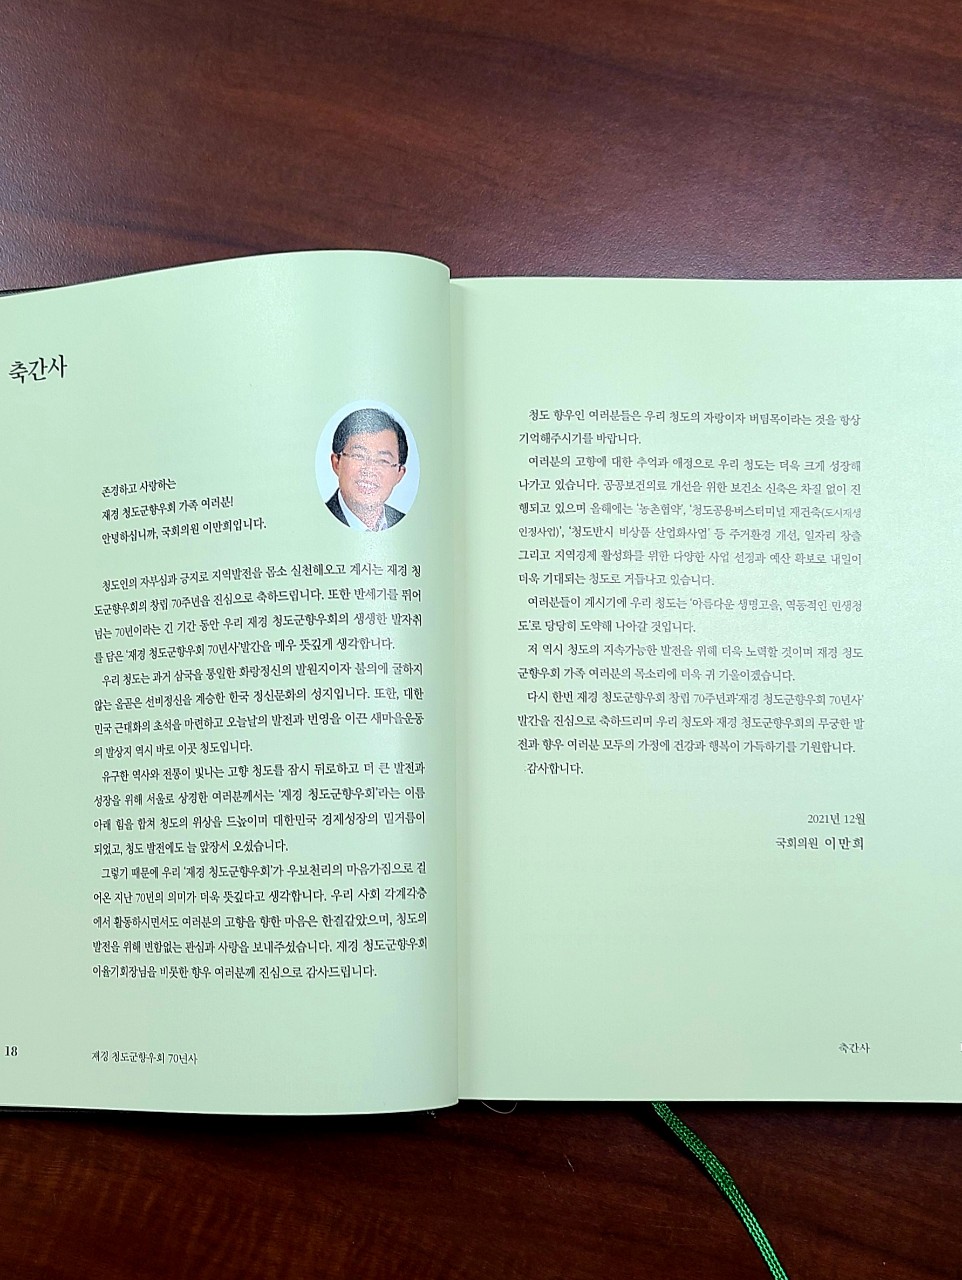 축간사
존경하고 사랑하는
재경 청도군향우회 가족 여러분!
안녕하십니까, 국회의원 이만희입니다.
청도인의 자부심과 긍지로 지역발전을 몸소 실천해오고 계시는 재경 청
도군향우회의 창립 70주년을 진심으로 축하드립니다. 또한 반세기를 뛰어
넘는 70년이라는 긴 기간 동안 우리 재경 청도군향우회의 생생한 발자취
를 담은 '재경 청도군향우회 70년사'발간을 매우 뜻깊게 생각합니다.
우리 청도는 과거 삼국을 통일한 화랑정신의 발원지이자 불의에 굴하지
않는 올곧은 선비정신을 계승한 한국 정신문화의 성지입니다. 또한, 대한
민국 근대화의 초석을 마련하고 오늘날의 발전과 번영을 이끈 새마을운동
의 발상지 역시 바로 이곳 청도입니다.
유구한 역사와 전통이 빛나는 고향 청도를 잠시 뒤로하고 더 큰 발전과
성장을 위해 서울로 상경한 여러분께서는 '재경 청도군향우회'라는 이름
아래 힘을 합쳐 청도의 위상을 드높이며 대한민국 경제성장의 밑거름이
되었고, 청도 발전에도 늘 앞장서 오셨습니다.
그렇기 때문에 우리 '재경 청도군향우회'가 우보천리의 마음가짐으로 걸
어온 지난 70년의 의미가 더욱 뜻깊다고 생각합니다. 우리 사회 각계각층
에서 활동하시면서도 여러분의 고향을 향한 마음은 한결같았으며, 청도의
발전을 위해 변함없는 관심과 사랑을 보내주셨습니다. 재경 청도군향우회
이윤기회장님을 비롯한 향우 여러분께 진심으로 감사드립니다.
18
재경 청도군향우회 70년사
청도 향우인 여러분들은 우리 청도의 자랑이자 버팀목이라는 것을 항상
기억해주시기를 바랍니다.
여러분의 고향에 대한 추억과 애정으로 우리 청도는 더욱 크게 성장해
나가고 있습니다. 공공보건의료 개선을 위한 보건소 신축은 차질 없이 진
행되고 있으며 올해에는 '농촌협약', '청도공용버스터미널 재건축(도시재생
인정사업)', '청도반시 비상품 산업화사업' 등 주거환경 개선, 일자리 창출
그리고 지역경제 활성화를 위한 다양한 사업 선정과 예산 확보로 내일이
더욱 기대되는 청도로 거듭나고 있습니다.
여러분들이 계시기에 우리 청도는 '아름다운 생명고을, 역동적인 민생청
도'로 당당히 도약해 나아갈 것입니다.
저 역시 청도의 지속가능한 발전을 위해 더욱 노력할 것이며 재경 청도
군향우회 가족 여러분의 목소리에 더욱 귀 기울이겠습니다.
다시 한번 재경 청도군향우회 창립 70주년과'재경 청도군향우회 70년사'
발간을 진심으로 축하드리며 우리 청도와 재경 청도군향우회의 무궁한 발
전과 향우 여러분 모두의 가정에 건강과 행복이 가득하기를 기원합니다.
감사합니다.
2021년 12월
국회의원 이만희
축간사